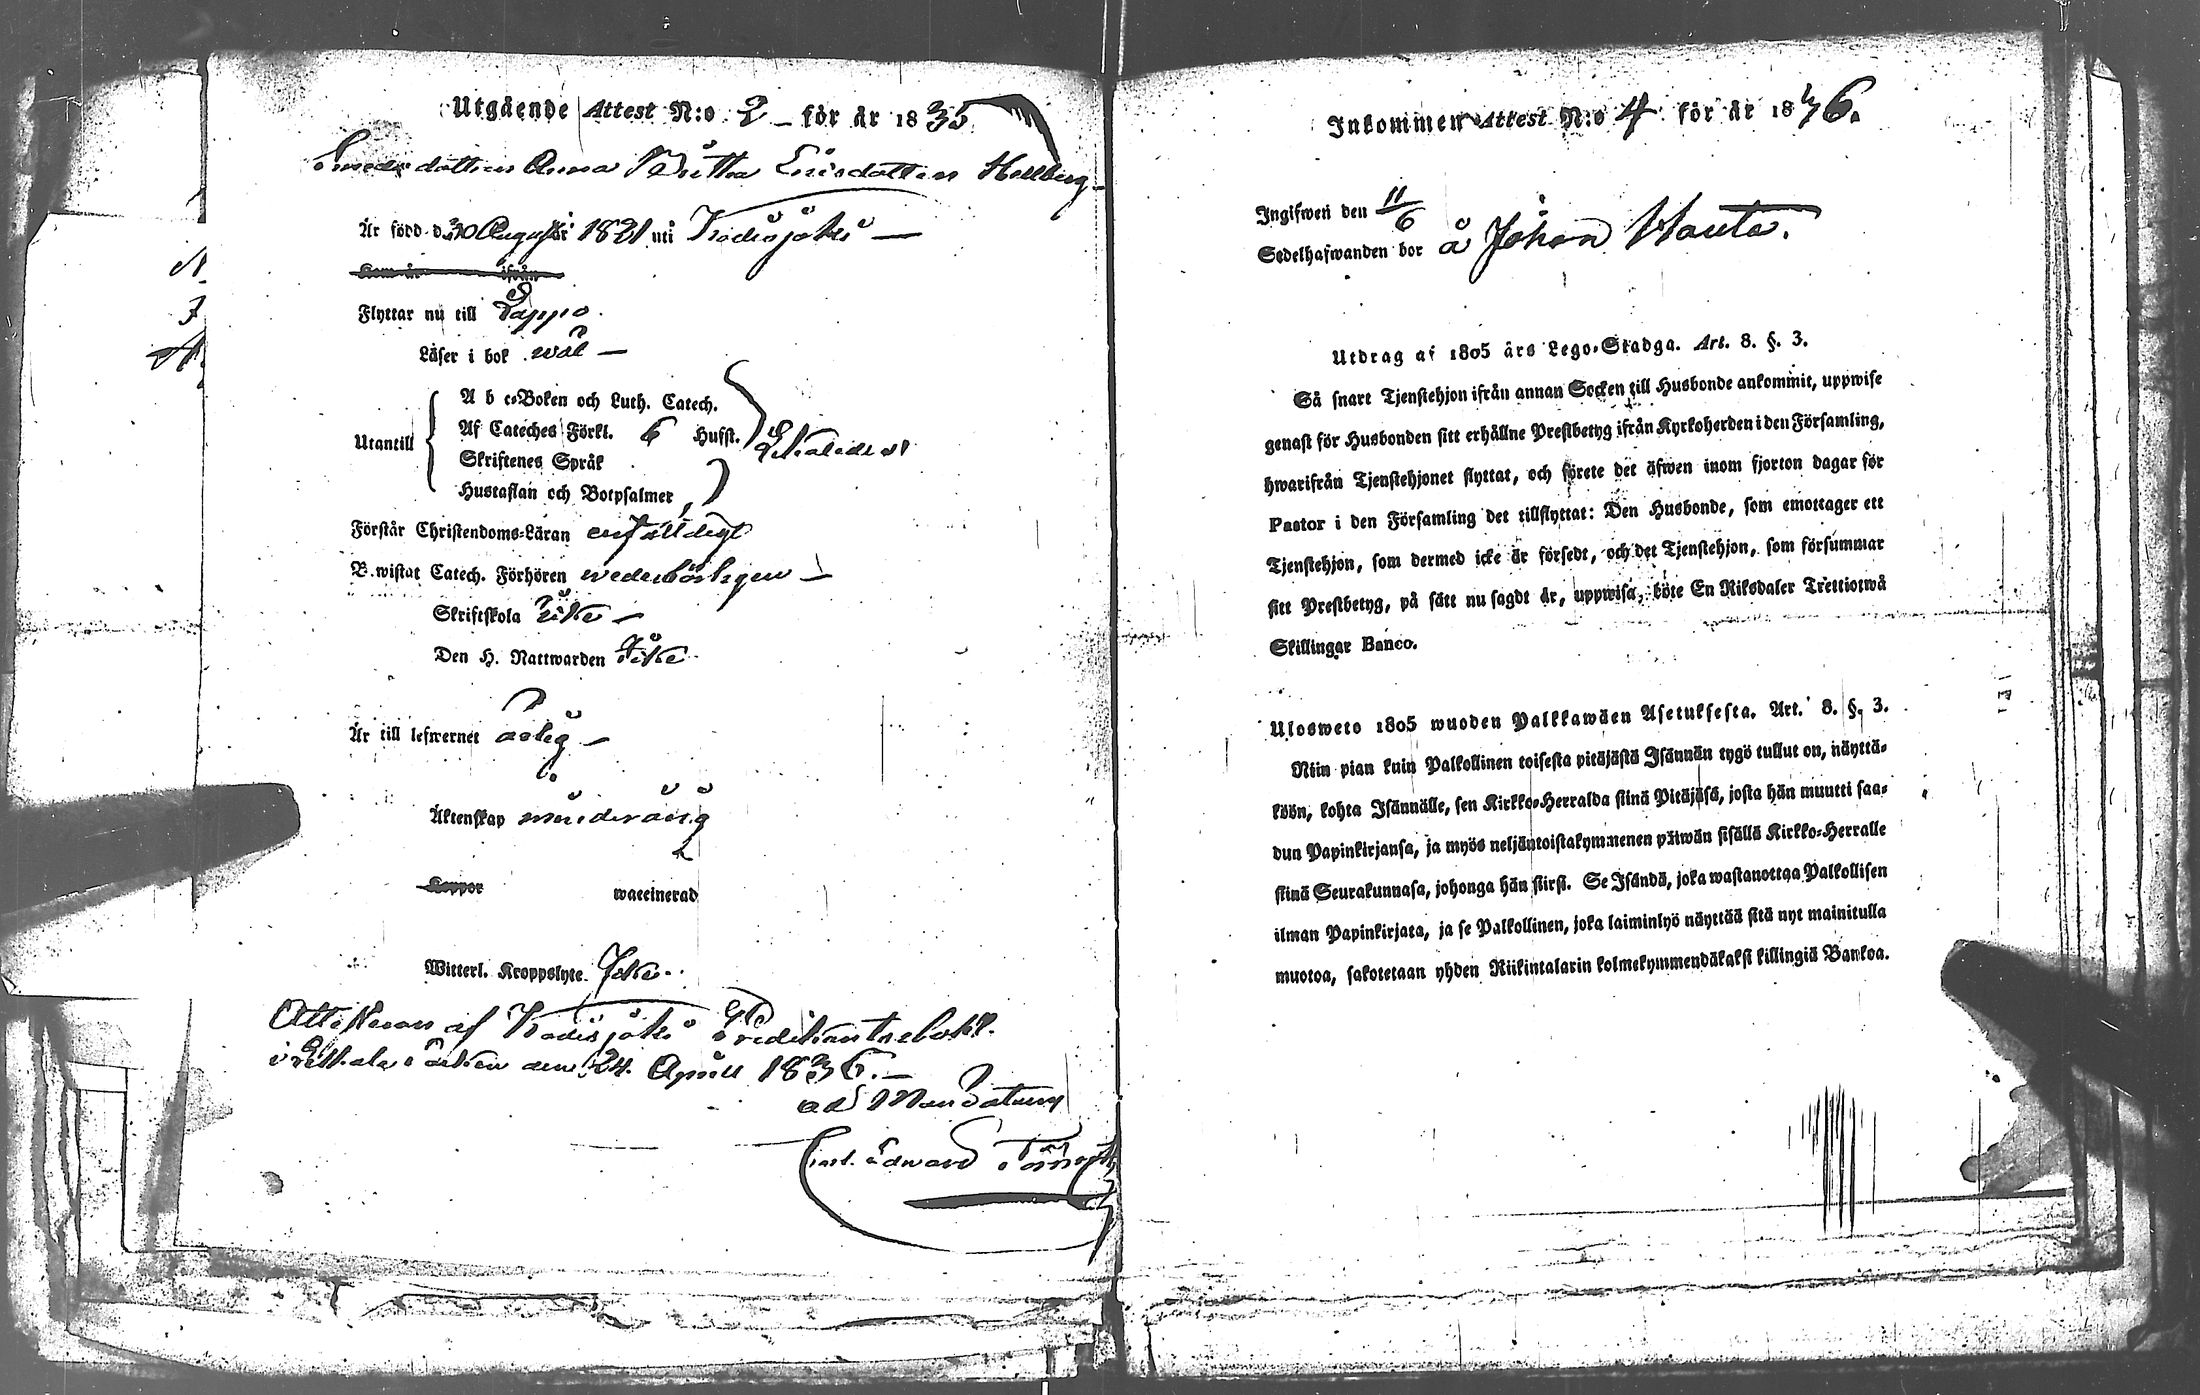 Utgående Attest N:o 2 för år 1835
Smedsdottren Anna Britta Ericsdotter Hellberg
Är född d. 30 Augusti 1821 uti Kodisjoki
Kom år ifrån
Flyttar nu till Lappo
Läser i bok wäl
A b c-Boken och Luth. Catech.
Utantill Af Cateches Förkl. 6 Hufst.
Skriftenes Språk
Hustaflan och Botpsalmer
Förstår Christendoms-Läran enfalldigt
B.wistat Catech. Förhören wederbörligen
Skriftskola icke
Den H. Nattwarden Icke
Är till lefwernet ärlig
Äktenskap minderårig
Koppor waccinerad
Witterl. Kroppslyte Icke
Attesteras af Kodisjoki
den 24. April 1836.
ad Mandatum
Carl Edward
Inkommen Attest N:o 4 för år 1836.
Ingifwen den 11/6
Sedelhafwanden bor å Johan
Utdrag af 1805 års Lego-Stadga. Art. 8. §. 3.
Så snart Tjenstehjon ifrån annan Socken till Husbonde ankommit, uppwise
genast för Husbonden sitt erhållne Prestbetyg ifrån Kyrkoherden i den Församling,
hwarifrån Tjenstehjonet flyttat, och förete det äfwen inom fjorton dagar för
Pastor i den Församling det tillflyttat: Den Husbonde, som emottager ett
Tjenstehjon, som dermed icke är försedt, och det Tjenstehjon, som försummar
sitt Prestbetyg, på sätt nu sagdt är, uppwisa, böte En Riksdaler Trettiotwå
Skillingar Banco.
Ulosweto 1805 wuoden Palkkawäen Asetuksesta. Art. 8. §. 3.
Niin pian kuin Palkollinen toisesta pitäjästä Isännän tygö tullut on, näyttä-
köön, kohta Isännälle, sen Kirkko-Herralda siinä Pitäjäsä, josta hän muutti saa-
dun Papinkirjansa, ja myös neljäntoistakymmenen päiwän sisällä Kirkko-Herralle
siinä Seurakunnasa, johonga hän siirsi. Se Isändä, joka wastanottaa Palkollisen
ilman Papinkirjata, ja se Palkollinen, joka laiminlyö näyttää sitä nyt mainitulla
muotoa, sakotetaan yhden Riikintalarin kolmekymmendäkaksi killingiä Bankoa.